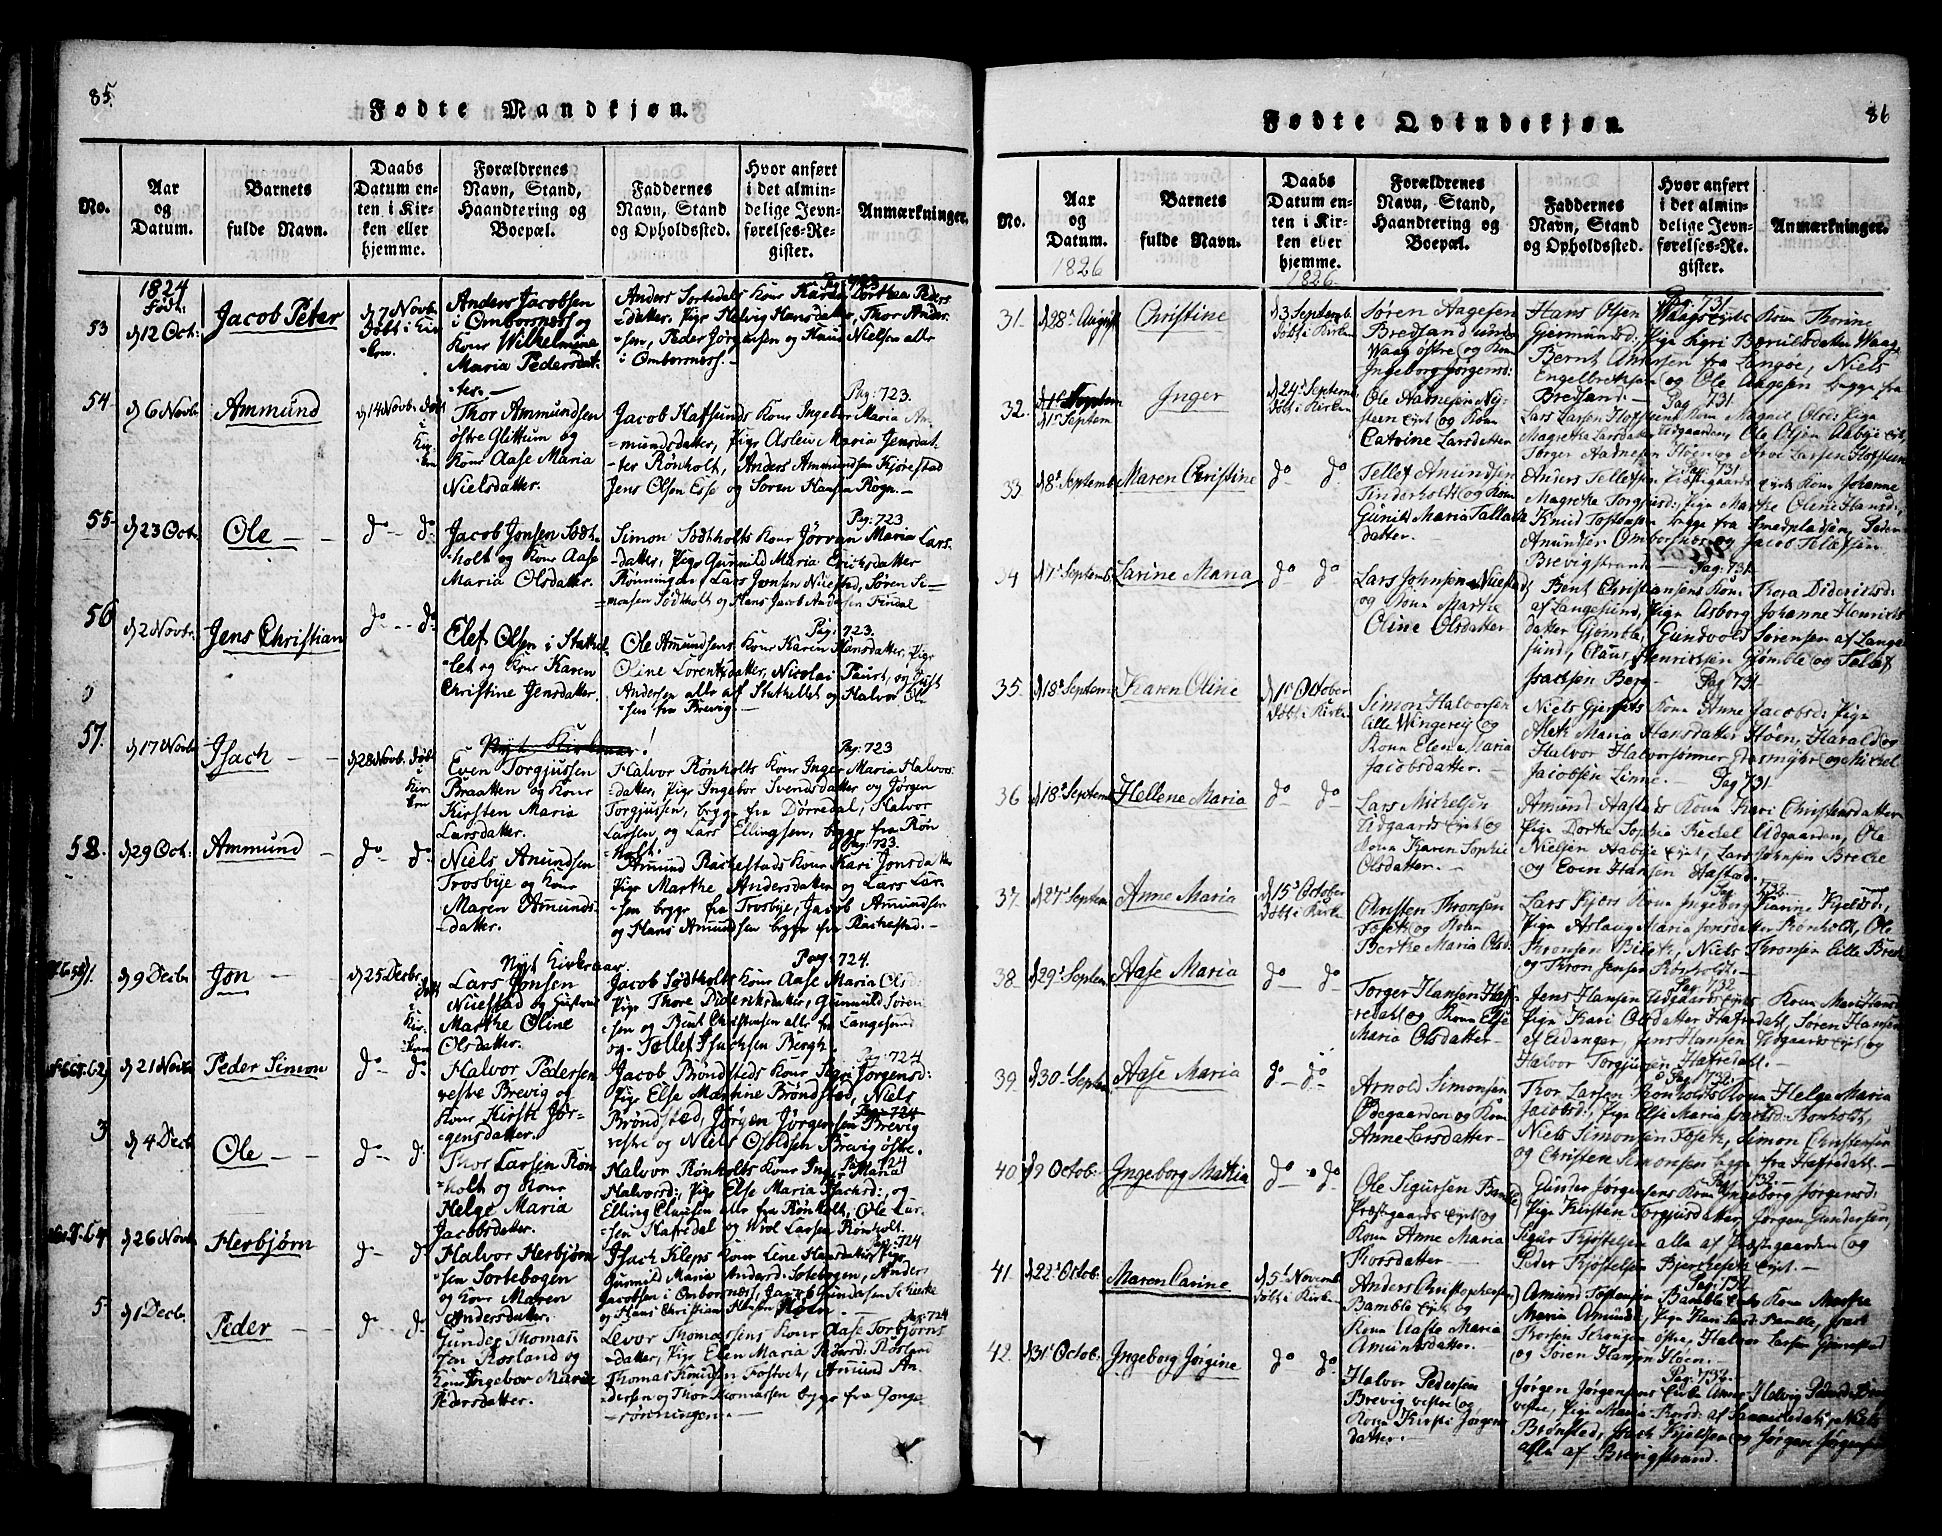 85.
Fødte Mandkjøn.
No.
Aar
og
Datum.
Barnets
fulde Navn.
Daabs
Datum en-
ten i Kir-
ken eller
hjemme.
Forældrenes
Navn, Stand,
Haandtering og
Boepæl.
Faddernes
Navn, Stand
og Opholdssted.
Hvor anført
i det almin-
delige Jevn-
førelses-Re-
gister.
Anmærkninger.
1824
Født.
53
d 12 Oct:
Jacob Peter
d 7 Novb.
døbt i Kir-
-ken.
Anders Jacobsen
i Ombornæss og
Kone Wilhelmine
Maria Pedersdat-
-ter. —
Pag: 723
Anders Sortedals Kone Karen Dorthea Peders
-datter, Pige Helvig Hansdatter, Thor Ander-
-sen, Peder Jørgensen og Knud Nielsen alle
i Ombornæss. —
54
d 6 Novb.
Ammund
d 14 Novb. døbt
i
Kir-
ken
Thor Ammundsen
østre Glittum og
Kone Aase Maria
Nielsdatter.
Pag: 723.
Jacob Hafsunds Kone Ingebor Maria Am-
-mundsdatter, Pige Aslew Maria Jensdat-
-ter Rønholt, Anders Ammundsen Kjørestad
Jens Olsen Esse og Søren Hansen Rogn. —
55
d 23 Oct:
Ole
do do
Jacob Jonsen Sødt-
-holt og Kone Aase
Maria Olsdatter.
Pag: 723.
Simon Sødtholts Kone Jørran Maria Lars-
-datter, Pige Gunnild Maria Erichsdatter
Rønningen, Lars Jonsen Nuestad, Søren Si-
=monsen Sødtholt og Hans Jacob Andersen Findal
56
d 2 Novb.
Jens Christian
do do
Elef Olsen i Stathel-
-let og Kone Karen
Christine Jensdatter.
Pag: 723.
Ole Amundsens Kone Karen Hansdatter, Pige
Oline Lorentsdatter, Nicolai Paust, og Just
Andersen alle af Stathellet og Halvor Ol-
-sen fra Brevig. —
57.
d 17 Novb.
Isach
d 28 Novb. døbt
i
Kir-
ken
Nyt Kirkeaar!
Even Torgjussen
Braatten og Kone
Kirsten Maria
Larsdatter.
Pag: 723
Halvor Rønholts Kone Inger Maria Halvors-
-datter, Pige Ingebor Svendsdatter og Jørgen
Torgjussen, begge fra Dørredal, Halvor
Larsen og Lars Ellingsen, begge fra Røn
holt.
58.
d 29 Oct:
Ammund
do do
Niels Anundsen
Trosbye og Kone
Maren Amunds-
-datter.
Pag: 723.
Amund Rachestads Kone Kari Jonsdatter
Pige Marthe Andersdatter og Lars Lar-
-sen begge fra Trosbye, Jacob Amundsen
og Hans Amundsen begge fra Rachestad.
d 9 Decbr.
Jon
d 25 Decbr.
døbt
i
Kir-
ken
Nyt Kirkeaar.
Lars Jonsen
Nuestad og Hustrue
Marthe Oline
Olsdatter.
Pag: 724.
Jacob Sødtholts Kone Aase Maria Olsd:
Pige Thore Diderksdatter, Gunnuld Søren
-sen og Bent Christensen alle fra Langesund
og Tollef Isachsen Bergh.
d 21 Novbr
Peder Simon
do do
Halvor Pedersen
vestre Brevig og
Kone Kirsti Jør-
-gensdatter.
Pag: 724
Jacob Brøndsteds Kone Sigri Jørgensd:
Pige Else Martine Brøndsted, Niels
Brøndsted, Jørgen Jørgensen Brevig
vestre og Niels Olsen Brevig østre.
3
d 4 Decbr
Ole
do do
Thor Larsen Røn
holt og Kone
Helge Maria
Jacobsdatter.
Pag: 724
Halvor Rønholts Kone Inger Maria
Halvorsd:, Pige Else Maria Isachsd:, og
Elling Clausen alle fra Rønholt, Ole Lar-
-sen Hafredal og Wrol Larsen Rønholt.
d 26 Novb
Herbjørn
do do
Halvor Herbjørn
-sen Sortebogen
og Kone Maren
Andersdatter.
Pag: 724
Isach Kleps Kone Lene Hansdatter, Pige
Gunnild Maria Andersd: Sotebogen, Anders
Jacobsen i Ombornæss, Jacob Gundersen Schierke
og Hans Christian Hansen Hoen
5
d 1 Decbr.
Peder
do do
Gunder Thomas-
-sen Rosland og
Kone Ingebor Maria
Pedersdatter.
Pag: 724
Levor Thomassens Kone Aase Torbjørns
-datter, Pige Elen Maria Pedersd: Rosland
Thomas Knudsen Fostvet, Amund An-
-dersen og Thor Thomassen begge fra Jonge
-rønningen. —
86
Fødte Qvindekjøn.
No.
Aar
og
Datum.
1826
Barnets
fulde Navn.
Daabs
Datum en-
ten i Kir-
ken eller
hjemme.
1826.
Forældrenes
Navn, Stand,
Haandtering og
Boepæl.
Faddernes
Navn, Stand
og Opholdssted.
Hvor anført
i det almin-
delige Jevn-
førelses-Re-
gister.
Anmærkninger.
31.
d 28 August
Christine
d 3 Septemb.
døbt i Kirken
Søren Aagesen
Bredsand und:
Waag østre og Kone
Ingeborg Jørgensd:
Pag: 731.
Hans Olsen Waags Eyets Kone Thorine
Gjermundsd: Pige Sigri Bærulsdatter Waag
Bernt Amesen fra Langøe, Niels
Engelbrektsen og Ole Aagesen begge fra
Bredsand. —
32.
d 1 Septem
Inger
d 24 Septemb
døbt i Kirken
Ole Aarnesen Ny-
steen Eyet og Kone
Catrine Larsdatter
Pag. 731.
Lars Larsen Hofsteens Kone Magnil Olsd: Pige
Magrethe Larsdatter Udgaarden, Ole Olsen Aabye Eyet,
Torger Aarnesen Hoen og Aroe Larsen Hofsteen
33
d 8 Septemb
Maren Christine
do do
Tellef Amundsen
Tinderholdt og Kone
Gunild Maria Tallaks
datter.
Pag. 731
Anders Tellefsen Præstegaards Eyets Kone Johanne
Magrete Torgiusd: Pige Marthe Olene Hansd:
Knud Tostensen begge fra Smedpladsen, Peder
Amundsen Ombornæs og Jacob Tellefsen
Brevigstrand
34
d 7 Septemb.
Larine Maria
do do
Lars Johnsen Nuestad
og Kone Marthe
Oline Olsdatter
Pag. 731.
Bent Christiansens Kone Thora Dideriksd:
af Langesund, Pige Asborg Johanne Henriks
datter Gjømle, Gundvold Sørensen af Lange-
sund, Claus Henriksen Gjømble og Tallef
Isachsen Berg —
35.
d 18 Septem
Karen Oline
d 1 October
døbt i Kirken
Simon Halvorsen
Lille Wingerej og
Kone Elene Maria
Jacobsdatter. —
Pag 731
Niels Gjersets Kone Anne Jacobsd: Pige
Alet Maria Hansdatter Hoen, Harald og
Halvor Halvorsønner Grasmyhr og Michel
Jacobsen Linne. —
36
d 18 Septem
Hellene Maria
do do
Lars Michelsen
Udgaards Eyet og
Kone Karen Sophie
Olsdatter. —
Pag 731
Amund Aasteds Kone Kari Christensdatter
Pige Dorthe Sophie Michel Udgaarden, Ole
Nielsen Aabye Eyet, Lars Johnsen Brecke
og Even Hansen Hastad.
37.
d 27 Septem
Anne Maria
d 15 October
døbt i Kirken
Christen Thronsen
Foset og Kone
Berthe Maria Olsd:
Pag 732.
Lars Kjers Kone Ingeborg Karine Kjelsd:,
Pige Aslaug Maria Jonsdatter Rønholt, Ole
Thronsen Bilet, Niels Thronsen Lille Brekke
og Thron Jensen Rønholt. —
38.
d 29 Septem
Aase Maria
do do
Torger Hansen Haf-
redahl og Kone Else
Maria Olsdatter —
Pag. 732
Jens Hansen Udgaards Eyets Kone Mari Hansd:
Pige Kari Olsdatter Hafredahl, Søren Hansen
af Eidanger, Jens Hansen Udgaards Eyet og
Halvor Torgjusen Hafredahl.
39.
d 30 Septem
Aase Maria
do do
Arnold Simonsen
Ødegaarden og Kone
Anne Larsdatter —
Pag 732.
Thor Larsen Rønholts Kone Helge Maria
Jacobsd:, Pige Else Maria Isachsd: Rønholt,
Niels Simonsen Foset, Simon Christensen
og Christen Simonsen begge fra Hafredahl. —
40.
d 9 Octob:
Ingeborg Mathia
do do
Ole Sigursen Bamble
Præstgaards Eyet og
Kone Anne Maria
Thorsdatter —
Pag 732.
Gunder Jørgensens Kone Ingeborg Jørgensd:
Pige Kirsten Torgjusdatter, Jørgen Gundersen,
Sigur Kjøstelsen alle af Præstgaarden og
Peder Kjøstelsen Bjerkeset Eyet. —
41.
d 22 Octob:
Maren Carine
d 5 Novemb
døbt i Kirken
Anders Christophersen
Bamble Eyet og
Kone Aaste Maria
Amundsdatter.
Pag. 732
Amund Tostensen Bamble Eyets Kone Marthe
Maria Amundsd:, Pige Kari Larsd: Bamble, Isach
østre, Halvor Larsen Gjømstad
og Søren Hansen Hoen.
42.
d 31 Octob.
Ingeborg Jørgine
do do
Halvor Pedersen
Brevig vestre og
Kone Kirsti Jørgens
datter. —
Pag. 732.
Jørgen Jørgensens Enke Anne Helvig Pedersd: Brevig
vestre, Pige Maria Thorsd: af Sannesdal, Niels
Brønsted, Isach Kjelsen og Jørgen Jørgensen
alle af Brevigstrand.